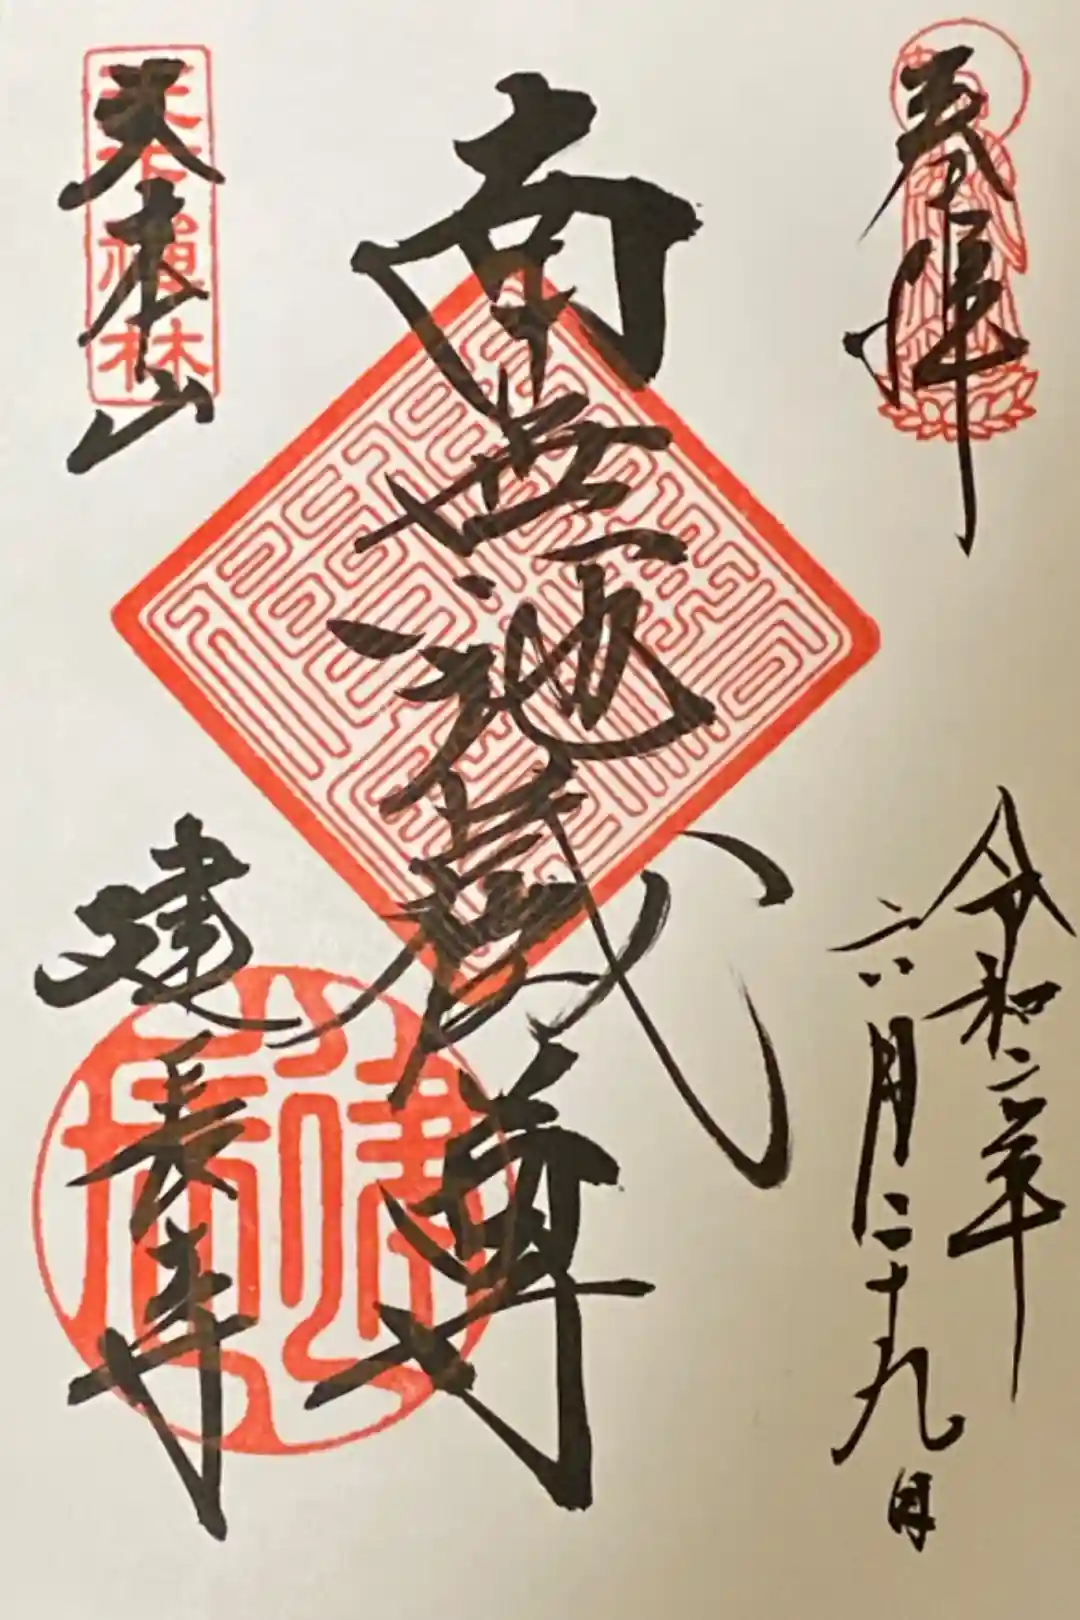 奉拝
令和二年
六月二十九日
南無地蔵尊
天本山
建長寺
天下禅林